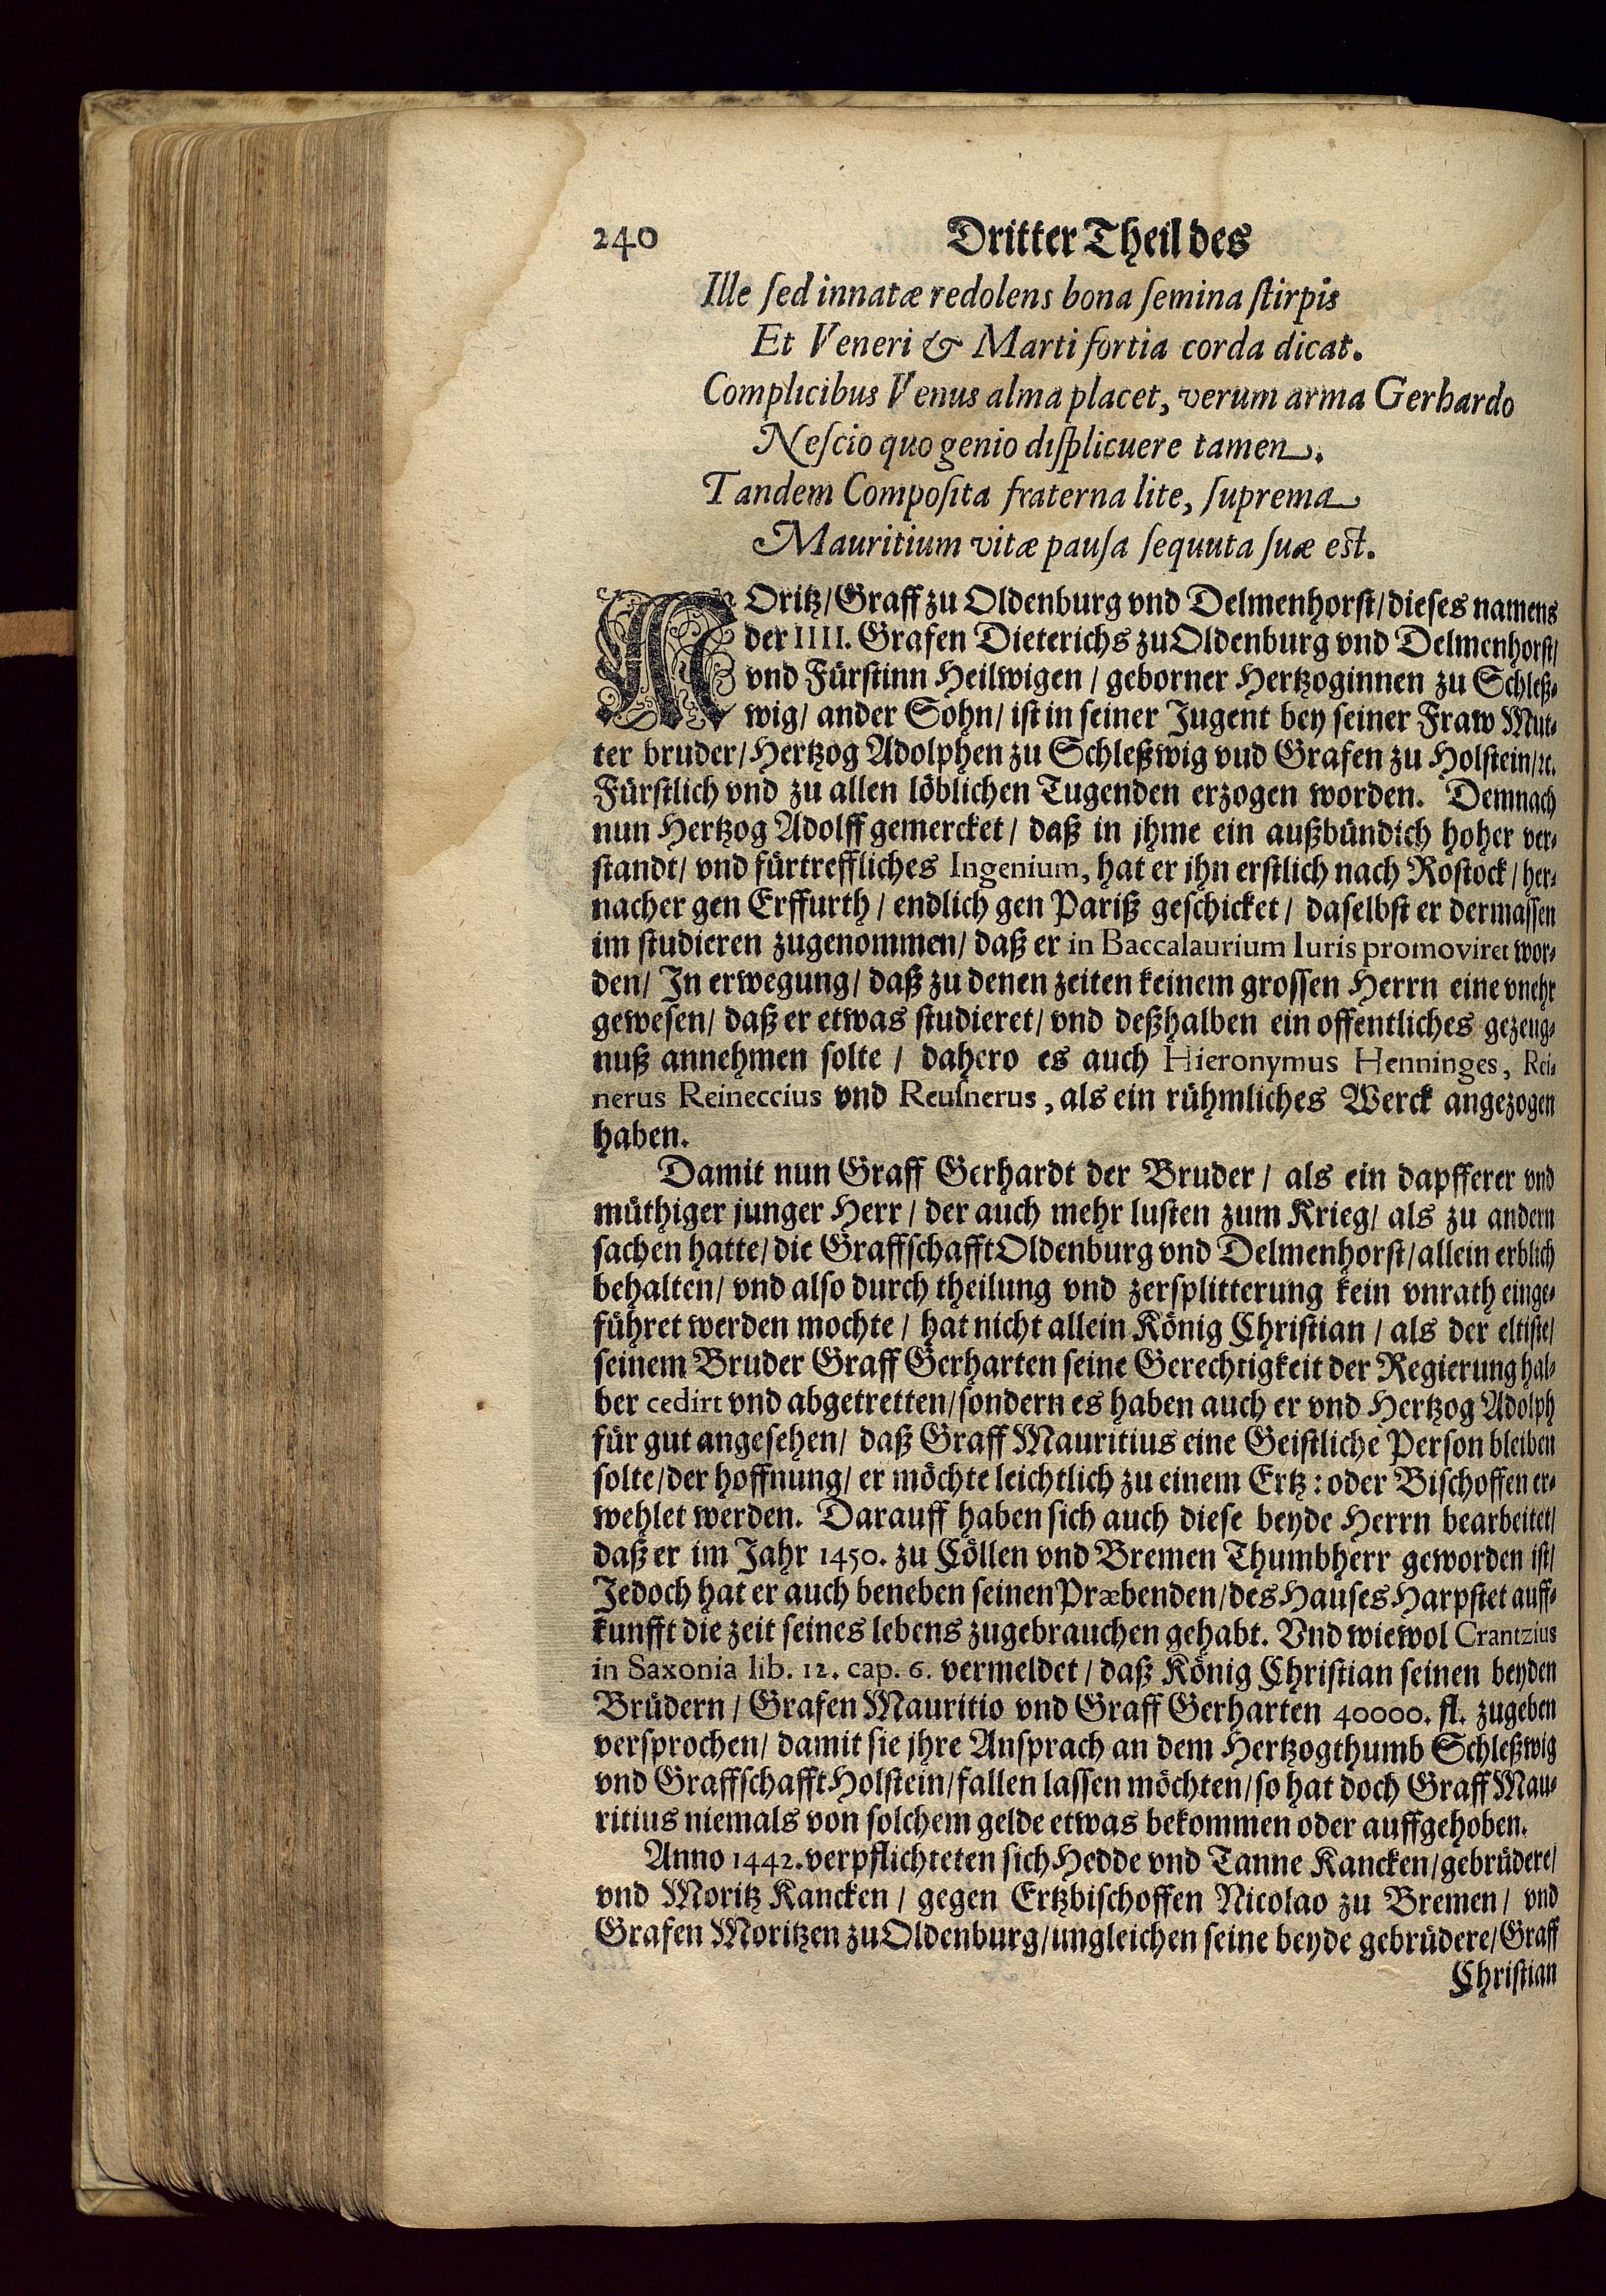 240 Dritter Theil des
Ille sed innatæ redolens bona semina stirpis
Et Veneri & Marti fortia corda dicat.
Complicibus Venus alma placet, verum arma Gerhardo
Nescio quo genio displicuere tamen.
Tandem Composita fraterna lite, suprema
Mauritium vitæ pausa sequuta suæ est.
MOritz/ Graff zu Oldenburg vnd Delmenhorst/ dieses namens
der IIII. Grafen Dieterichs zu Oldenburg vnd Delmenhorst/
vnd Fürstinn Heilwigen / geborner Hertzoginnen zu Schleß-
wig/ ander Sohn/ ist in seiner Jugent bey seiner Fraw Mut-
ter bruder/ Hertzog Adolphen zu Schleßwig vud Grafen zu Holstein/ ꝛc.
Fürstlich vnd zu allen löblichen Tugenden erzogen worden. Demnach
nun Hertzog Adolff gemercket / daß in jhme ein außbündich hoher ver-
standt/ vnd fürtreffliches Ingenium, hat er jhn erstlich nach Rostock / her-
nacher gen Erffurth / endlich gen Pariß geschicket / daselbst er dermassen
im studieren zugenommen/ daß er in Baccalaurium Iuris promoviret wor-
den/ In erwegung/ daß zu denen zeiten keinem grossen Herrn eine vnehr
gewesen/ daß er etwas studieret/ vnd deßhalben ein offentliches gezeug-
nuß annehmen solte / dahero es auch Hieronymus Henninges, Rei-
nerus Reineccius vnd Reusnerus, als ein rühmliches Werck angezogen
haben.
Damit nun Graff Gerhardt der Bruder / als ein dapfferer vnd
müthiger junger Herr / der auch mehr lusten zum Krieg/ als zu andern
sachen hatte/ die Graffschafft Oldenburg vnd Delmenhorst/ allein erblich
behalten/ vnd also durch theilung vnd zersplitterung kein vnrath einge-
führet werden mochte / hat nicht allein König Christian / als der eltiste/
seinem Bruder Graff Gerharten seine Gerechtigkeit der Regierung hal-
ber cedirt vnd abgetretten/ sondern es haben auch er vnd Hertzog Adolph
für gut angesehen/ daß Graff Mauritius eine Geistliche Person bleiben
solte/ der hoffnung/ er möchte leichtlich zu einem Ertz: oder Bischoffen er-
wehlet werden. Darauff haben sich auch diese beyde Herrn bearbeitet/
daß er im Jahr 1450. zu Cöllen vnd Bremen Thumbherr geworden ist/
Jedoch hat er auch beneben seinen Præbenden/ des Hauses Harpstet auff-
kunfft die zeit seines lebens zugebrauchen gehabt. Vnd wiewol Crantzius
in Saxonia lib. 12. cap. 6. vermeldet / daß König Christian seinen beyden
Brüdern / Grafen Mauritio vnd Graff Gerharten 40000. fl. zugeben
versprochen/ damit sie jhre Ansprach an dem Hertzogthumb Schleßwig
vnd Graffschafft Holstein/ fallen lassen möchten/ so hat doch Graff Mau-
ritius niemals von solchem gelde etwas bekommen oder auffgehoben.
Anno 1442. verpflichteten sich Hedde vnd Tanne Kancken/ gebrüdere/
vnd Moritz Kancken / gegen Ertzbischoffen Nicolao zu Bremen / vnd
Grafen Moritzen zu Oldenburg/ ungleichen seine beyde gebrüdere/ Graff
Christian